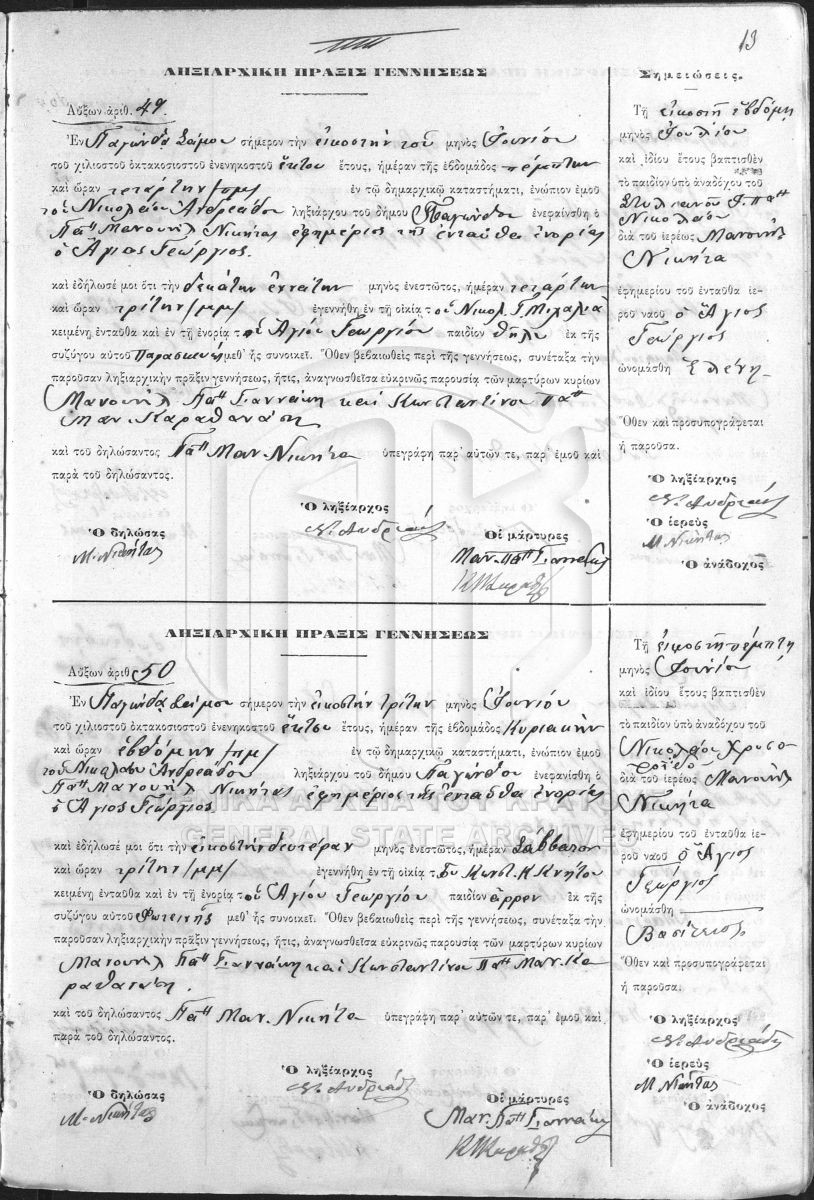 13
ΛΗΞΙΑΡΧΙΚΗ ΠΡΑΞΙΣ ΓΕΝΝΗΣΕΩΣ
Αὔξων ἀριθ. 49
Ἐν Παγώνδᾳ Σάμου σήμερον τὴν εἰκοστὴν του μηνὸς Ἰουνίου
τοῦ χιλιοστοῦ ὀκτακοσιοστοῦ ἐνενηκοστοῦ ἕκτου ἔτους, ἡμέραν τῆς ἑβδομάδος πέμπτην
καὶ ὥραν τετάρτην /πμ/ ἐν τῷ δημαρχικῷ καταστήματι, ἐνώπιον ἐμοῦ
τοῦ Νικολάου Ἀνδρεάδου ληξιάρχου τοῦ δήμου Παγώνδου ἐνεφανίσθη ὁ
Παπᾶ Μανουὴλ Νικήτας ἐφημέριος τῆς ἐνταῦθα ἐνορίας
ὁ Ἅγιος Γεώργιος.
καὶ ἐδήλωσέ μοι ὅτι τὴν δεκάτην ἐννάτην μηνὸς ἐνεστῶτος, ἡμέραν τετάρτην
καὶ ὥραν τρίτην /μμ/ ἐγεννήθη ἐν τῇ οἰκίᾳ τοῦ Νικολ. Γ. Μιχαλιᾶ
κειμένῃ ἐνταῦθα καὶ ἐν τῇ ἐνορίᾳ τοῦ Ἁγίου Γεωργίου παιδίον θῆλυ ἐκ τῆς
συζύγου αὐτοῦ Παρασκευῆς μεθ' ἧς συνοικεῖ. Ὅθεν βεβαιωθεὶς περὶ τῆς γεννήσεως, συνέταξα τὴν
παροῦσαν ληξιαρχικὴν πρᾶξιν γεννήσεως, ἥτις, ἀναγνωσθεῖσα εὐκρινῶς παρουσίᾳ τῶν μαρτύρων κυρίων
Μανουὴλ Παπᾶ Γιαννάκη καὶ Κωνσταντίνου Παπᾶ
Μαν. Καραθανάση
καὶ τοῦ δηλώσαντος Παπᾶ Μαν. Νικήτα ὑπεγράφη παρ' αὐτῶν τε, παρ' ἐμοῦ καὶ
παρὰ τοῦ δηλώσαντος.
Ὁ ληξίαρχος
Ν. Ἀνδρεάδης
Ὁ δηλώσας
Μ. Νικήτας
Οἱ μάρτυρες
Μαν. Παπᾶ Γιαννάκης
Σημειώσεις.
Τῇ εἰκοστῇ ἑβδόμῃ
μηνὸς Ἰουλίου
καὶ ἰδίου ἔτους βαπτισθὲν
τὸ παιδίον ὑπὸ ἀναδόχου τοῦ
Στυλιανοῦ Γ. Παπᾶ
Νικολάου
διὰ τοῦ ἱερέως Μανουὴλ
Νικήτα
ἐφημερίου τοῦ ἐνταῦθα ἱε-
ροῦ ναοῦ ὁ Ἅγιος
Γεώργιος
ὠνομάσθη Ἑλένη
Ὅθεν καὶ προσυπογράφεται
ἡ παροῦσα.
Ὁ ληξίαρχος
Ν. Ἀνδρεάδης
Ὁ ἱερεὺς
Μ. Νικήτας
Ὁ ἀνάδοχος
ΛΗΞΙΑΡΧΙΚΗ ΠΡΑΞΙΣ ΓΕΝΝΗΣΕΩΣ
Αὔξων ἀριθ. 50
Ἐν Παγώνδᾳ Σάμου σήμερον τὴν εἰκοστὴν τρίτην μηνὸς Ἰουνίου
τοῦ χιλιοστοῦ ὀκτακοσιοστοῦ ἐνενηκοστοῦ ἕκτου ἔτους, ἡμέραν τῆς ἑβδομάδος Κυριακὴν
καὶ ὥραν ἑβδόμην /πμ/ ἐν τῷ δημαρχικῷ καταστήματι, ἐνώπιον ἐμοῦ
τοῦ Νικολάου Ἀνδρεάδου ληξιάρχου τοῦ δήμου Παγώνδου ἐνεφανίσθη ὁ
Παπᾶ Μανουὴλ Νικήτας ἐφημέριος τῆς ἐνταῦθα ἐνορίας
ὁ Ἅγιος Γεώργιος
καὶ ἐδήλωσέ μοι ὅτι τὴν εἰκοστὴν δευτέραν μηνὸς ἐνεστῶτος, ἡμέραν Σάββατον
καὶ ὥραν τρίτην /μμ/ ἐγεννήθη ἐν τῇ οἰκίᾳ τοῦ Κωνστ. Κ. Κνήτου
κειμένῃ ἐνταῦθα καὶ ἐν τῇ ἐνορίᾳ τοῦ Ἁγίου Γεωργίου παιδίον ἄρρεν ἐκ τῆς
συζύγου αὐτοῦ Φωτεινῆς μεθ' ἧς συνοικεῖ. Ὅθεν βεβαιωθεὶς περὶ τῆς γεννήσεως, συνέταξα τὴν
παροῦσαν ληξιαρχικὴν πρᾶξιν γεννήσεως, ἥτις, ἀναγνωσθεῖσα εὐκρινῶς παρουσίᾳ τῶν μαρτύρων κυρίων
Μανουὴλ Παπᾶ Γιαννάκη καὶ Κωνσταντίνου Παπᾶ Μαν. Κα
ραθανάση.
καὶ τοῦ δηλώσαντος Παπᾶ Μαν. Νικήτα ὑπεγράφη παρ' αὐτῶν τε, παρ' ἐμοῦ καὶ
παρὰ τοῦ δηλώσαντος.
Ὁ ληξίαρχος
Ν. Ἀνδρεάδης
Ὁ δηλώσας
Μ. Νικήτας
Οἱ μάρτυρες
Μαν. Παπᾶ Γιαννάκης
Τῇ εἰκοστῇ πέμπτῃ
μηνὸς Ἰουνίου
καὶ ἰδίου ἔτους βαπτισθὲν
τὸ παιδίον ὑπὸ ἀναδόχου τοῦ
Νικολάου Χρυσο
διὰ τοῦ ἱερέως Μανουὴλ
Νικήτα
ἐφημερίου τοῦ ἐνταῦθα ἱε-
ροῦ ναοῦ ὁ Ἅγιος
Γεώργιος
ὠνομάσθη
Βασίλειος
Ὅθεν καὶ προσυπογράφεται
ἡ παροῦσα.
Ὁ ληξίαρχος
Ν. Ἀνδρεάδης
Ὁ ἱερεὺς
Μ. Νικήτας
Ὁ ἀνάδοχος
ΓΕΝΙΚΑ ΑΡΧΕΙΑ ΤΟΥ ΚΡΑΤΟΥΣ
GENERAL STATE ARCHIVES